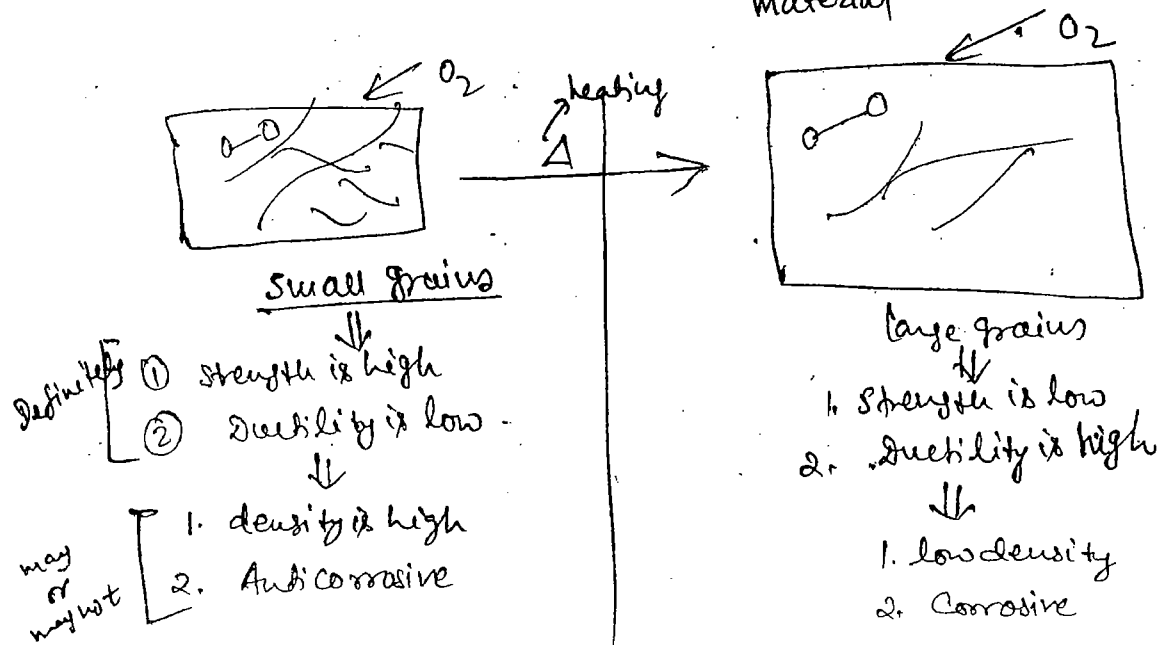 material
O2
O2
heating
Δ
small grains
⇓
Definitely
① strength is high
② Ductility is low
⇓
may
or
may not
1. density is high
2. Anticorrosive
large grains
⇓
1. Strength is low
2. Ductility is high
⇓
1. low density
2. Corrosive